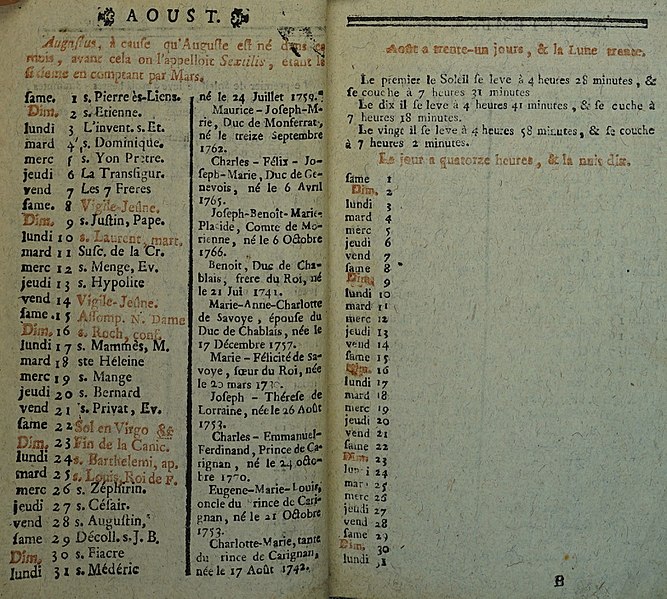 AOUST.
Augustus, à cause qu'Auguste est né dans ce
mois, avant cela on l'appelloit Sextilis, étant le
sixieme en comptant par Mars.
same. 1 s. Pierre ès-Liens.
Dim. 2 s. Etienne.
lundi 3 L'invent. s. Et.
mard 4 s. Dominique.
merc 5 s. Yon Prêtre.
jeudi 6 La Transfigur.
vend 7 Les 7 Freres
same. 8 Vigile-Jeûne.
Dim. 9 s. Justin, Pape.
lundi 10 s. Laurent, mart.
mard 11 Susc. de la Cr.
merc 12 s. Menge, Ev.
jeudi 13 s. Hypolite
vend 14 Vigile-Jeûne.
same. 15 Assomp. N. Dame
Dim. 16 s. Roch, conf.
lundi 17 s. Mammès, M.
mard 18 ste Héleine
merc 19 s. Mange
jeudi 20 s. Bernard
vend 21 s. Privat, Ev.
same 22 Sol en Virgo
Dim. 23 Fin de la Canic.
lundi 24 s. Barthelemi, ap.
mard 25 s. Louis, Roi de F.
merc 26 s. Zéphirin.
jeudi 27 s. Césair.
vend 28 s. Augustin,
same 29 Décoll. s. J. B.
Dim. 30 s. Fiacre
lundi 31 s. Médéric
né le 24 Juillet 1759.
Maurice-Joseph-Marie, Duc de Monferrat,
né le treize Septembre
1762.
Charles-Félix-Joseph-Marie, Duc de Genevois, né le 6 Avril
1765.
Joseph-Benoît-Marie-
Placide, Comte de Morienne, né le 6 Octobre
1766.
Benoit, Duc de Chablais, frere du Roi, né
le 21 Jui 1741.
Marie-Anne-Charlotte
de Savoye, épouse du
Duc de Chablais, née le
17 Décembre 1757.
Marie-Félicité de Savoye, sœur du Roi, née
le 20 mars
Joseph-Thérese de
Lorraine, née le 26 Août
1753.
Charles-Emmanuel-
Ferdinand, Prince de Carignan, né le 24 octobre
Eugene-Marie-Louis,
oncle du Prince de Carignan, né le 21 Octobre
1753.
Charlotte-Marie, tante
du Prince de Carignan,
née le 17 Août 1742.
Août a trente-un jours, & la Lune trente.
Le premier le Soleil se leve à 4 heures 28 minutes, &
se couche à 7 heures 31 minutes
Le dix il se leve à 4 heures 41 minutes, & se cuche à
7 heures 18 minutes.
Le vingt il se leve à 4 heures 58 minutes, & se couche
à 7 heures 2 minutes.
Le jour a quatorze heures, & la nuit dix.
same 1
Dim. 2
lundi 3
mard 4
merc 5
jeudi 6
vend 7
same 8
Dim. 9
lundi 10
mard 11
merc 12
jeudi 13
vend 14
same 15
Dim. 16
lundi 17
mard 18
merc 19
jeudi 20
vend 21
same 22
Dim. 23
lundi 24
mar 25
merc 26
jeudi 27
vend 28
same 29
Dim. 30
lundi 31
B